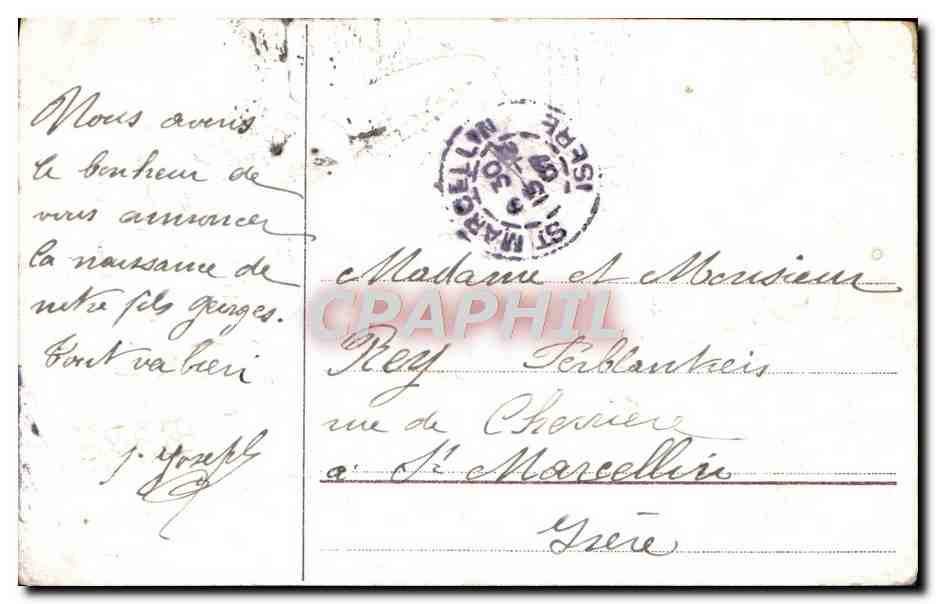 Nous avons
le bonheur de
vous annoncer
la naissance de
notre fils georges.
Tout va bien
J. Joseph
ST MARCELLIN
ISERE
15
30
07
Madame et Monsieur
CPRAPHIL
Rey Ferblantiers
rue de Chevrière
à St Marcellin
Isère